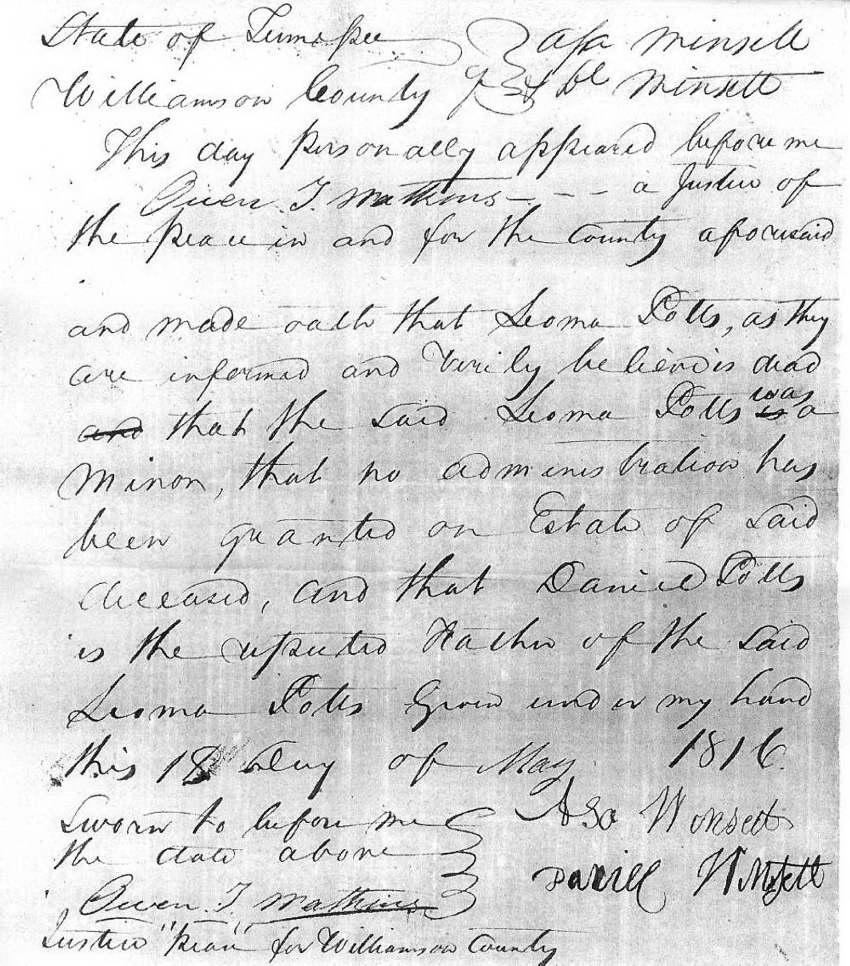 State of Tennessee } Asa Winsett
Williamson County } & Dl Winsett
This day personally appeared before me
Owen T. Watkins - - - a Justice of
the peace in and for the County aforesaid
and made oath that Leoma Potts, as they
are informed and verily believe is dead
and that the said Leoma Potts was is a
minor, that no administration has
been granted on Estate of said
deceased, and that Daniel Potts
is the reputed Father of the said
Leoma Potts Given under my hand
this 18 day of May 1816
Sworn to before me } Asa Wonsett
the date above
Daniel Winsett
Owen T. Watkins
Justice "Peace" for Williamson County